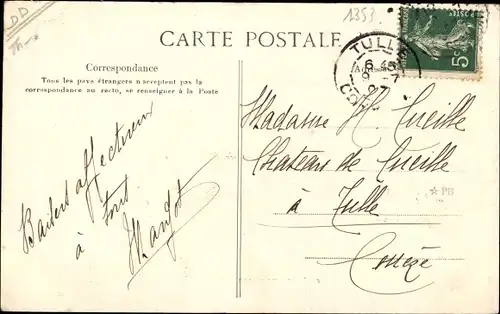 DD
1353
CARTE POSTALE
TULLE
5c
6 45
9 - 7
07
Correspondance
Tous les pays étrangers n'acceptent pas la
correspondance au recto, se renseigner à la Poste
Baisers affectueux
à tous
Margot
Madame H. Cueille
Chateau de Cueille
à Tulle
Corrèze
☆ PB